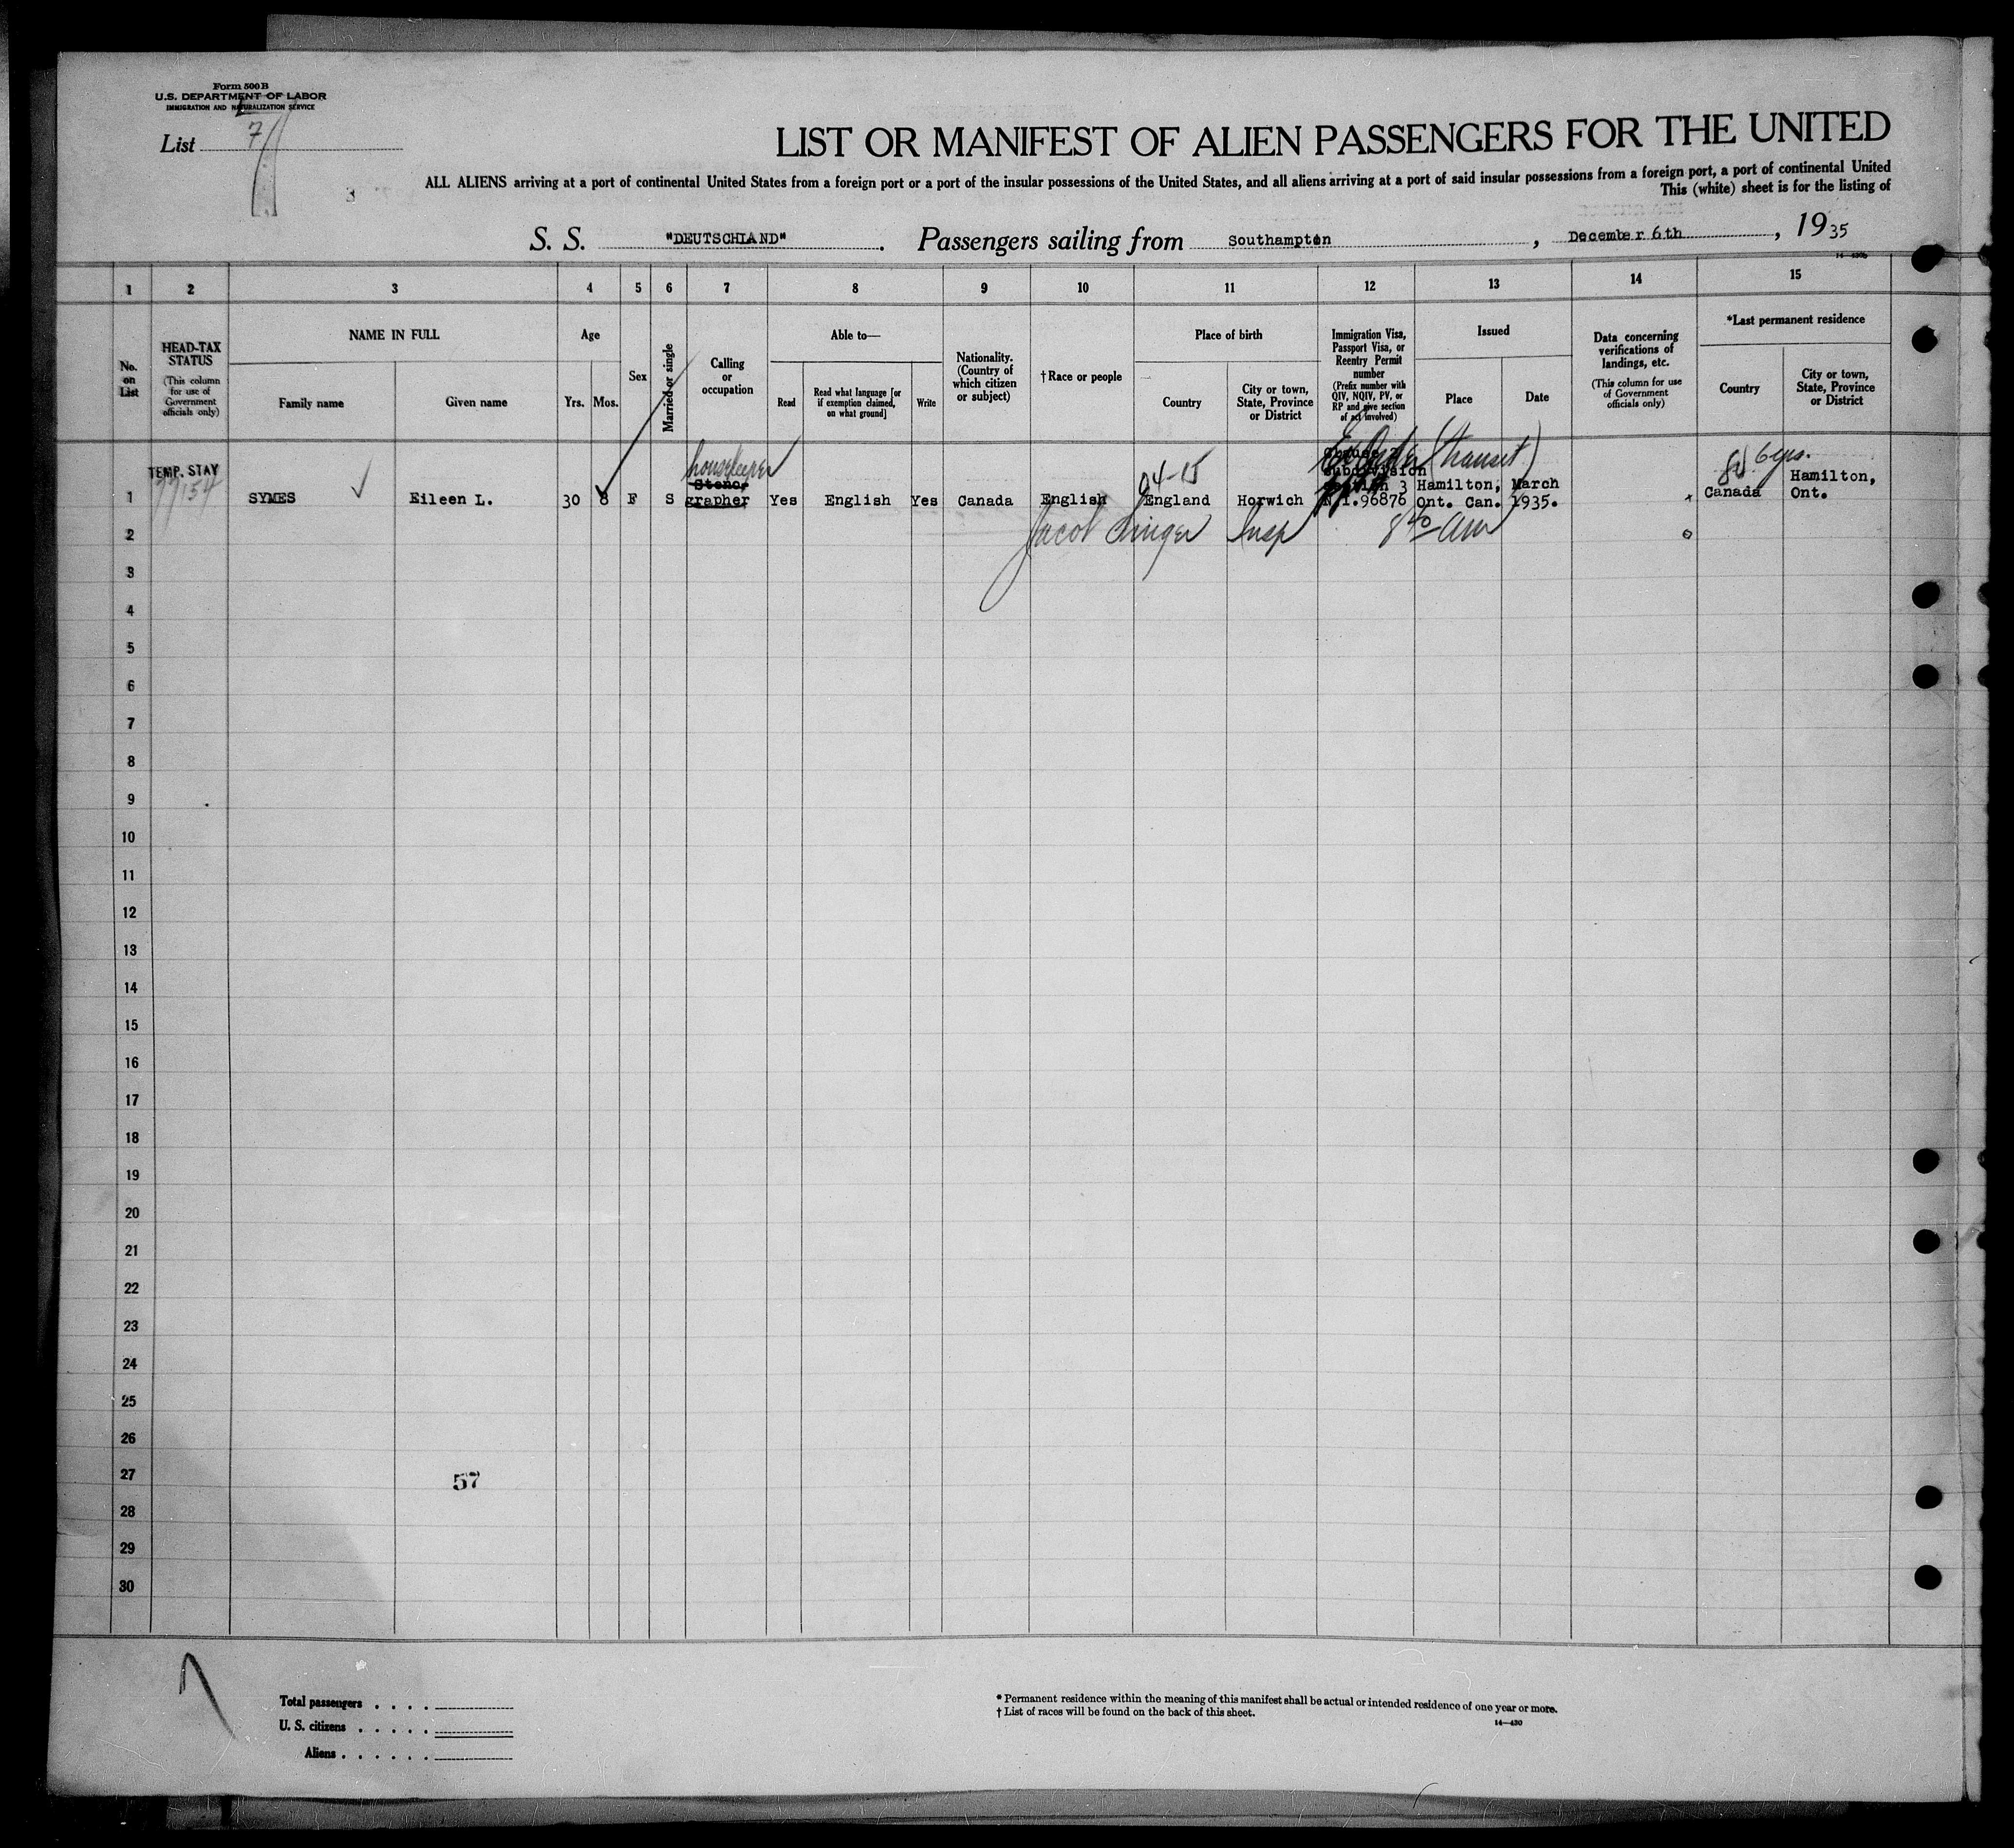 Form 500 B
U.S. DEPARTMENT OF LABOR
IMMIGRATION AND NATURALIZATION SERVICE
List 7
LIST OR MANIFEST OF ALIEN PASSENGERS FOR THE UNITED
ALL ALIENS arriving at a port of continental United States from a foreign port or a port of the insular possessions of the United States, and all aliens arriving at a port of said insular possessions from a foreign port, a port of continental United
This (white) sheet is for the listing of
S. S. "DEUTSCHLAND". Passengers sailing from Southampton, December 6th, 1935
1 2 3 4 5 6 7 8 9 10 11 12 13 14 15
No. on List
HEAD-TAX STATUS
(This column for use of Government officials only)
NAME IN FULL
Family name
Given name
Age
Yrs. Mos.
Sex
Married or single
Calling or occupation
Able to—
Read
Read what language [or if exemption claimed, on what ground]
Write
Nationality. (Country of which citizen or subject)
†Race or people
Place of birth
Country
City or town, State, Province or District
Immigration Visa, Passport Visa, or Reentry Permit number
(Prefix number with QIV, NQIV, PV, or RP and give section of act involved)
Issued
Place
Date
Data concerning verifications of landings, etc.
(This column for use of Government officials only)
*Last permanent residence
Country
City or town, State, Province or District
housekeeper
04-15
(transit)
6 yrs.
TEMP. STAY
77154
Steno,
subdivision
Section 3
Hamilton, March
Hamilton,
1 SYMES Eileen L. 30 8 F S grapher Yes English Yes Canada English England Horwich 96876 Ont. Can. 1935. Canada Ont.
Jacob Singer Insp
2
3
4
5
6
7
8
9
10
11
12
13
14
15
16
17
18
19
20
21
22
23
24
25
26
27
57
28
29
30
Total passengers . . . .
U. S. citizens . . . . .
Aliens . . . . . .
* Permanent residence within the meaning of this manifest shall be actual or intended residence of one year or more.
† List of races will be found on the back of this sheet.
14—430